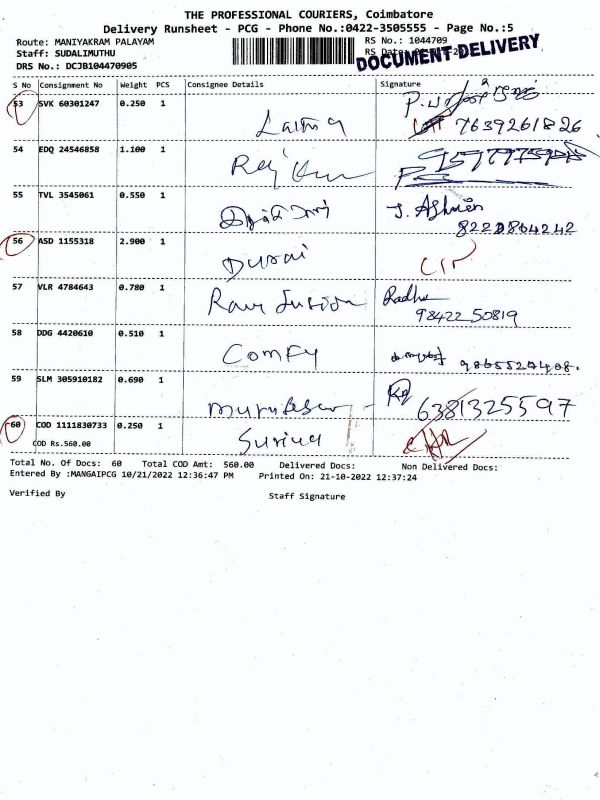 THE PROFESSIONAL COURIERS, Coimbatore
Delivery Runsheet - PCG - Phone No.:0422-3505555 - Page No.:5
Route: MANIYAKRAM PALAYAM
RS No.: 1044709
Staff: SUDALIMUTHU
RS Date:
DOCUMENT DELIVERY
DRS No.: DCJB104470905
S No Consignment No Weight PCS Consignee Details Signature
53 SVK 60301247 0.250 1
7639261826
54 EDQ 24546858 1.100 1 Raj
55 TVL 3545061 0.550 1 J. Ashwin
8220864242
56 ASD 1155318 2.900 1 Durai
57 VLR 4784643 0.780 1 Ravi fusion Radha
98422 50819
58 DDG 4420610 0.510 1 Comfy
9865527408.
59 SLM 305910182 0.690 1 Murugesan
6381325597
60 COD 1111830733 0.250 1 Suriya
COD Rs.560.00
Total No. Of Docs: 60 Total COD Amt: 560.00 Delivered Docs: Non Delivered Docs:
Entered By :MANGAIPCG 10/21/2022 12:36:47 PM Printed On: 21-10-2022 12:37:24
Verified By Staff Signature